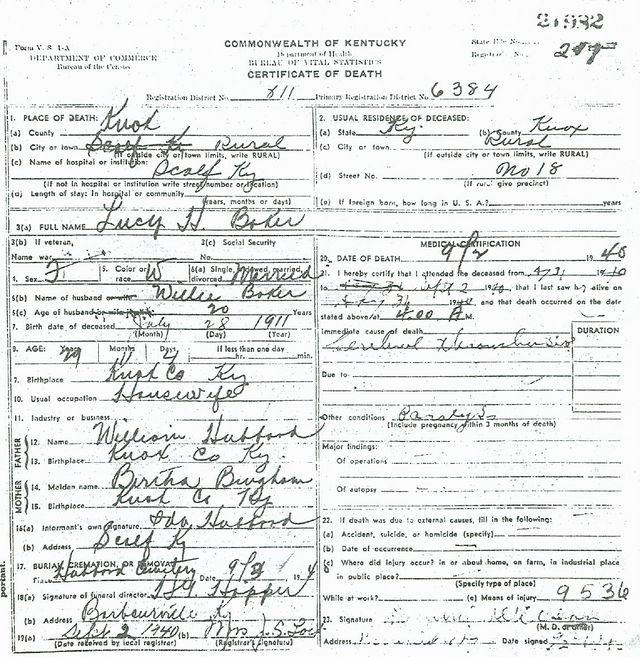 21982
Form V. S. 1-A
DEPARTMENT OF COMMERCE
Bureau of the Census
COMMONWEALTH OF KENTUCKY
Department of Health
BUREAU OF VITAL STATISTICS
CERTIFICATE OF DEATH
State File No.
Registrar's No.
Registration District No. 811 Primary Registration District No. 6384
1. PLACE OF DEATH:
(a) County Knox
(b) City or town Scalf Ky Rural
(If outside city or town limits, write RURAL)
(c) Name of hospital or institution: Scalf Ky
(If not in hospital or institution write street number or location)
(d) Length of stay: In hospital or community
(years, months or days)
2. USUAL RESIDENCE OF DECEASED:
(a) State Ky. (b) County Knox
(c) City or town Rural
(If outside city or town limits, write RURAL)
(d) Street No. No 18
(If rural give precinct)
(e) If foreign born, how long in U. S. A.? years
3(a) FULL NAME Lucy H. Baker
3(b) If veteran, Name war
3(c) Social Security No.
4. Sex F 5. Color or race W 6(a) Single, widowed, married, divorced Married
6(b) Name of husband or wife Willie Baker
6(c) Age of husband or wife 20 Years
7. Birth date of deceased July 28 1911
(Month) (Day) (Year)
8. AGE: Years 29 Months 1 Days 4 If less than one day hr. min.
9. Birthplace Knox Co Ky
10. Usual occupation Housewife
11. Industry or business
FATHER
12. Name William Hubbard
13. Birthplace Knox Co Ky.
MOTHER
14. Maiden name Bertha Bingham
15. Birthplace Knox Co Ky
16(a) Informant's own signature Ida Hubbard
(b) Address Scalf Ky
17. BURIAL, CREMATION, OR REMOVAL
Place Hubbard Cemetery Date 9/3 194
18(a) Signature of funeral director Hopper
(b) Address Barbourville Ky
19(a) Sept 2 1940 (b) Mrs
(Date received by local registrar) (Registrar's signature)
MEDICAL CERTIFICATION
20. DATE OF DEATH 9/2 1940
21. I hereby certify that I attended the deceased from
to Sept 2 1940, that I last saw her alive on
1940, and that death occurred on the date
stated above at 4:00 A M.
Immediate cause of death
DURATION
Cerebral Thrombosis
Due to
Other conditions Paralysis
(Include pregnancy within 3 months of death)
Major findings:
Of operations
Of autopsy
22. If death was due to external causes, fill in the following:
(a) Accident, suicide, or homicide (specify)
(b) Date of occurrence
(c) Where did injury occur? in or about home, on farm, in industrial place
in public place?
(Specify type of place)
While at work? (e) Means of injury 9536
23. Signature
(M. D. or other)
Address Date signed
portant.